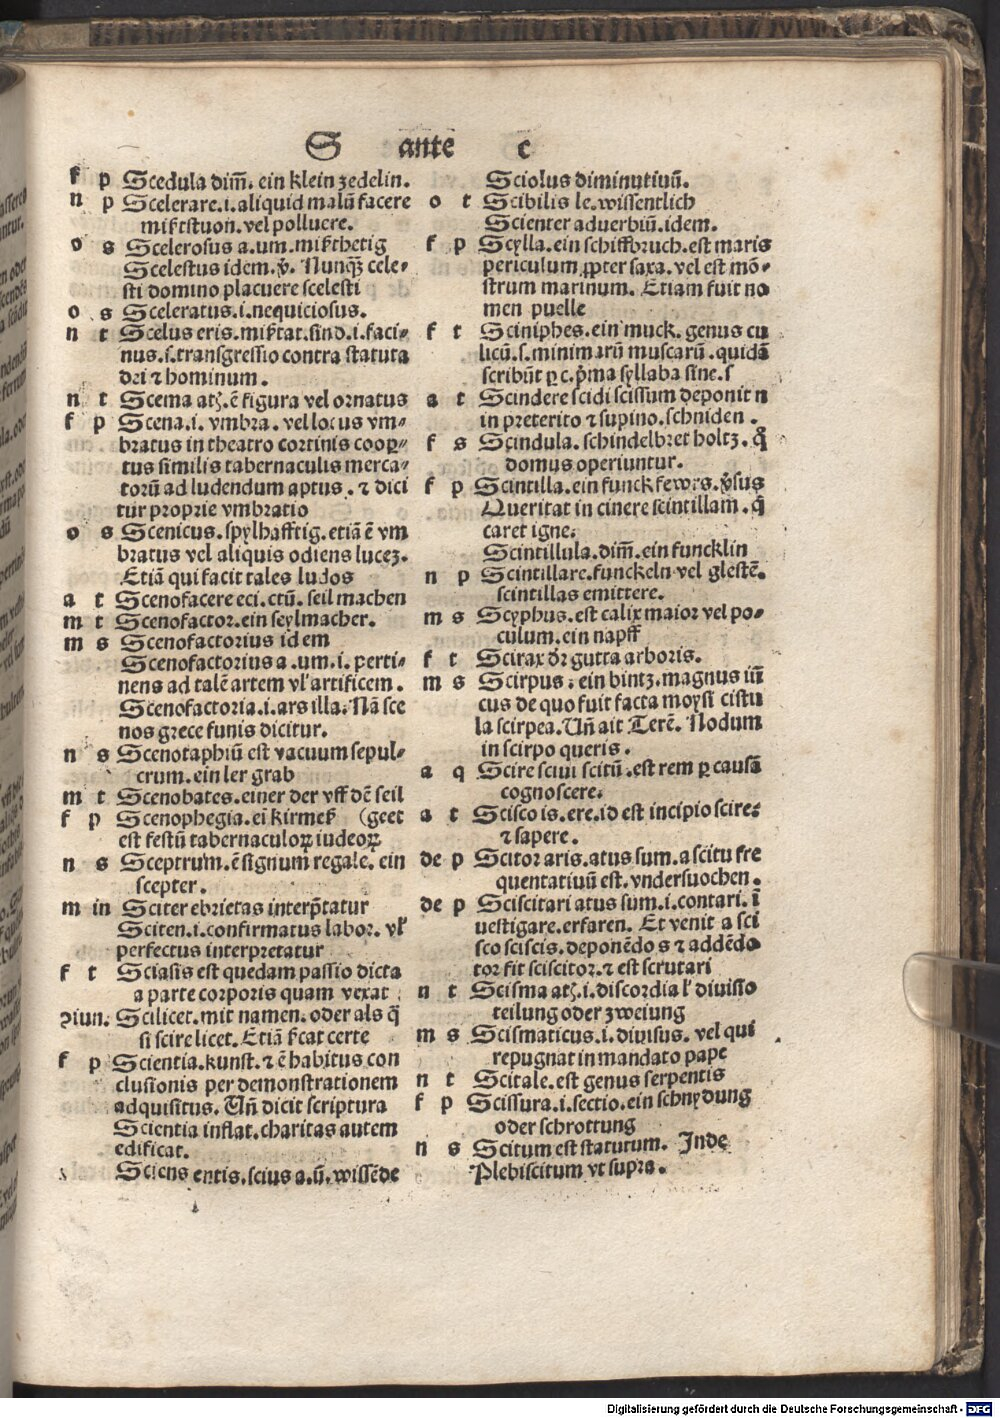 S ante c
f p Scedula dim̄. ein klein zedelin.
n p Scelerare.i.aliquid malū facere
mißtstuon.vel polluere.
o s Scelerosus a.um.mißthetig
Scelestus idem.ỽ. Nunqʒ cele⸗
sti domino placuere scelesti
o s Sceleratus.i.nequiciosus.
n t Scelus eris.mißtat.sind.i.faci⸗
nus.s.transgressio contra statuta
dei ⁊ hominum.
n t Scema atꝫ.ē figura vel ornatus
f p Scena.i. vmbra. vel locus vm⸗
bratus in theatro cortinis cooꝑ⸗
tus similis tabernaculis merca⸗
torū ad ludendum aptus. ⁊ dici
tur proprie vmbratio
o s Scenicus.spylhafftig.etiā ē vm
bratus vel aliquis odiens luceꝫ.
Etiā qui facit tales ludos
a t Scenofacere eci.ctū. seil machen
m t Scenofactor.ein seylmacher.
m s Scenofactorius idem
Scenofactorius a.um.i.perti⸗
nens ad talē artem vl' artificem.
Scenofactoria.i.ars illa. Nā sce
nos grece funis dicitur.
n s Scenotaphiū est vacuum sepul⸗
crum.ein ler grab
m t Scenobates.einer der vff dē seil
f p Scenophegia.ei kirmeß (geet
est festū tabernaculoꝝ iudeoꝝ
n s Sceptrum.ē signum regale. ein
scepter.
m in Sciter ebrietas interp̄tatur
Sciten.i.confirmatus labor. vl'
perfectus interpretatur
f t Sciasis est quedam passio dicta
a parte corporis quam vexat
ꝯiun. Scilicet.mit namen.oder als q̄
si scire licet. Etiā ßcat certe
f p Scientia.kunst.⁊ ē habitus con
clusionis per demonstrationem
adquisitus. Vn̄ dicit scriptura
Scientia inflat.charitas autem
edificat.
Sciens entis.scius a.ū.wissēde
Sciolus diminutiuū.
o t Scibilis le.wissentlich
Scienter aduerbiū.idem.
f p Scylla.ein schiffbruch.est maris
periculum ꝓpter saxa.vel est mō⸗
strum marinum. Etiam fuit no
men puelle
f t Sciniphes.ein muck. genus cu
licū.s.minimarū muscarū.quidā
scribūt ꝑ c.p̄ma syllaba sine.s
a t Scindere scidi scissum deponit n
in preterito ⁊ supino.schniden.
f s Scindula.schindelbret holtz. q̄
domus operiuntur.
f p Scintilla.ein funck fewrs.ỽsus
Queritat in cinere scintillam.q̄
caret igne.
Scintillula.dim̄.ein funcklin
n p Scintillare.funckeln vel glestē.
scintillas emittere.
m s Scyphus.est calix maior vel po⸗
culum.ein napff
f t Scirax dr̄ gutta arboris.
m s Scirpus.ein bintz.magnus iū
cus de quo fuit facta moysi cistu
la scirpea.Vn̄ ait Terē. Nodum
in scirpo queris.
a q Scire sciui scitū.est rem ꝑ causā
cognoscere.
a t Scisco is.ere.id est incipio scire.
⁊ sapere.
de p Scitor aris.atus sum.a scitu fre
quentatiuū est.vndersuochen.
de p Sciscitari atus sum.i.contari. ī
uestigare.erfaren. Et venit a sci
sco sciscis.deponēdo s ⁊ addēdo
tor fit sciscitor.⁊ est scrutari
n t Scisma atꝫ.i.discordia l' diuisio
teilung oder zweiung
m s Scismaticus.i.diuisus. vel qui
repugnat in mandato pape
n t Scitale.est genus serpentis
f p Scissura.i.sectio.ein schnydung
oder schrottung
n s Scitum est statutum. Inde
Plebiscitum vt supra.
Digitalisierung gefördert durch die Deutsche Forschungsgemeinschaft - DFG